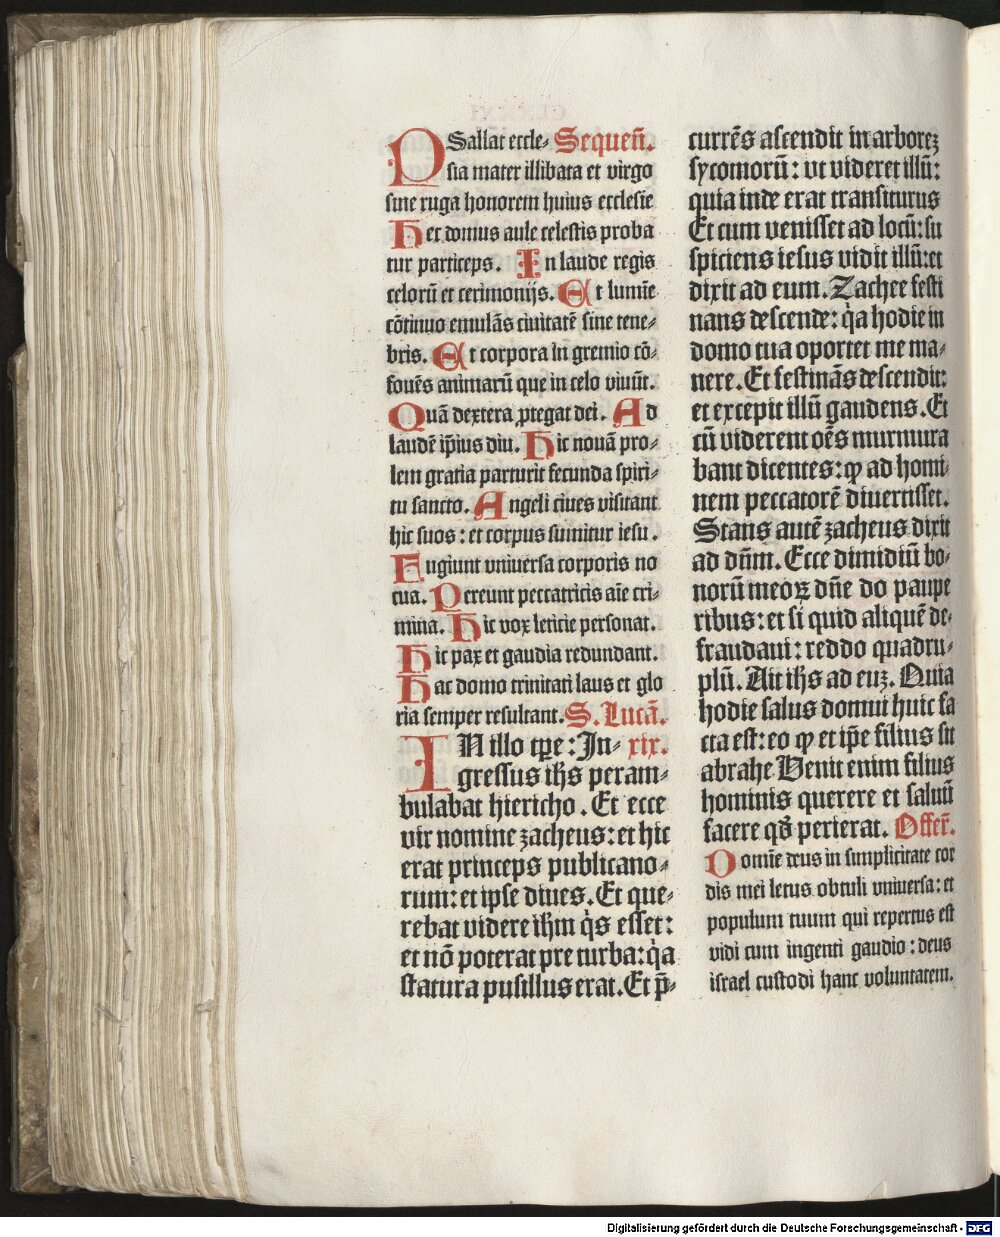 PSallat eccle- Sequen̄.
sia mater illibata et virgo
sine ruga honorem huius ecclesie
Hec domus aule celestis proba
tur particeps. In laude regis
celorū et cerimonijs. Et lumīe
cōtinuo emulās ciuitatē sine tene-
bris. Et corpora in gremio cō-
fouēs animarū que in celo viuūt.
Quā dextera ꝓtegat dei. Ad
laudē ip̄ius diu. Hic nouā pro-
lem gratia parturit fecunda spiri-
tu sancto. Angeli ciues visitant
hic suos: et corpus sumitur iesu.
Fugiunt vniuersa corporis no
cua. Pereunt peccatricis aīe cri-
mina. Hic vox leticie personat.
Hic pax et gaudia redundant.
Hac domo trinitati laus et glo
ria semper resultant. S. Lucā.
IN illo tꝑe: In- xix.
gressus ih̄s peram-
bulabat hiericho. Et ecce
vir nomine zacheus: et hic
erat princeps publicano-
rum: et ipse diues. Et que-
rebat videre ih̄m q̇s esset:
et nō poterat pre turba: q̇a
statura pusillus erat. Et p̄-
currēs ascendit in arboreꝫ
sycomorū: vt videret illū:
quia inde erat transiturus
Et cum venisset ad locū: su
spiciens iesus vidit illū: et
dixit ad eum. Zachee festi
nans descende: q̇a hodie in
domo tua oportet me ma-
nere. Et festinās descendit:
et excepit illū gaudens. Et
cū viderent oēs murmura
bant dicentes: ꝙ ad homi-
nem peccatorē diuertisset.
Stans autē zacheus dixit
ad dn̄m. Ecce dimidiū bo-
norū meoꝝ dn̄e do paupe
ribus: et si quid aliquē de-
fraudaui: reddo quadru-
plū. Ait ih̄s ad euꝫ. Quia
hodie salus domui huic fa
cta est: eo ꝙ et ip̄e filius sit
abrahe Venit enim filius
hominis querere et saluū
facere qd̄ perierat. Offer̄.
Domīe deus in simplicitate cor
dis mei letus obtuli vniuersa: et
populum tuum qui repertus est
vidi cum ingenti gaudio: deus
israel custodi hanc voluntatem.
Digitalisierung gefördert durch die Deutsche Forschungsgemeinschaft - DFG